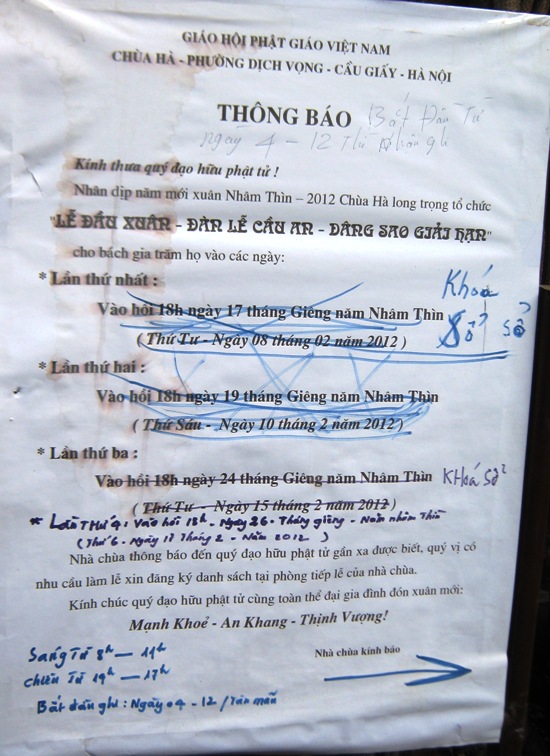 GIÁO HỘI PHẬT GIÁO VIỆT NAM
CHÙA HÀ - PHƯỜNG DỊCH VỌNG - CẦU GIẤY - HÀ NỘI
THÔNG BÁO Bắt Đầu Từ
ngày 4 - 12
Kính thưa quý đạo hữu phật tử !
Nhân dịp năm mới xuân Nhâm Thìn – 2012 Chùa Hà long trọng tổ chức
"LỄ ĐẦU XUÂN - ĐÀN LỄ CẦU AN - DÂNG SAO GIẢI HẠN"
cho bách gia trăm họ vào các ngày:
* Lần thứ nhất :
Khoá
Vào hồi 18h ngày 17 tháng Giêng năm Nhâm Thìn Sổ Sổ
( Thứ Tư - Ngày 08 tháng 02 năm 2012 )
* Lần thứ hai :
Vào hồi 18h ngày 19 tháng Giêng năm Nhâm Thìn
( Thứ Sáu - Ngày 10 tháng 2 năm 2012 )
* Lần thứ ba :
Vào hồi 18h ngày 24 tháng Giêng năm Nhâm Thìn Khoá Sổ
( Thứ Tư - Ngày 15 tháng 2 năm 2012 )
* Lần THứ 4 . Vào hồi 18h . Ngày 26 . Tháng giêng - Năm nhâm Thìn
( Thứ 6 . Ngày 17 Tháng 2 . Năm 2012 )
Nhà chùa thông báo đến quý đạo hữu phật tử gần xa được biết, quý vị có
nhu cầu làm lễ xin đăng ký danh sách tại phòng tiếp lễ của nhà chùa.
Kính chúc quý đạo hữu phật tử cùng toàn thể đại gia đình đón xuân mới:
Mạnh Khoẻ - An Khang - Thịnh Vượng!
Sáng Từ 8h - 11h
Nhà chùa kính báo
chiều Từ 14h - 17h
Bắt đầu ghi : Ngày 04 - 12 /